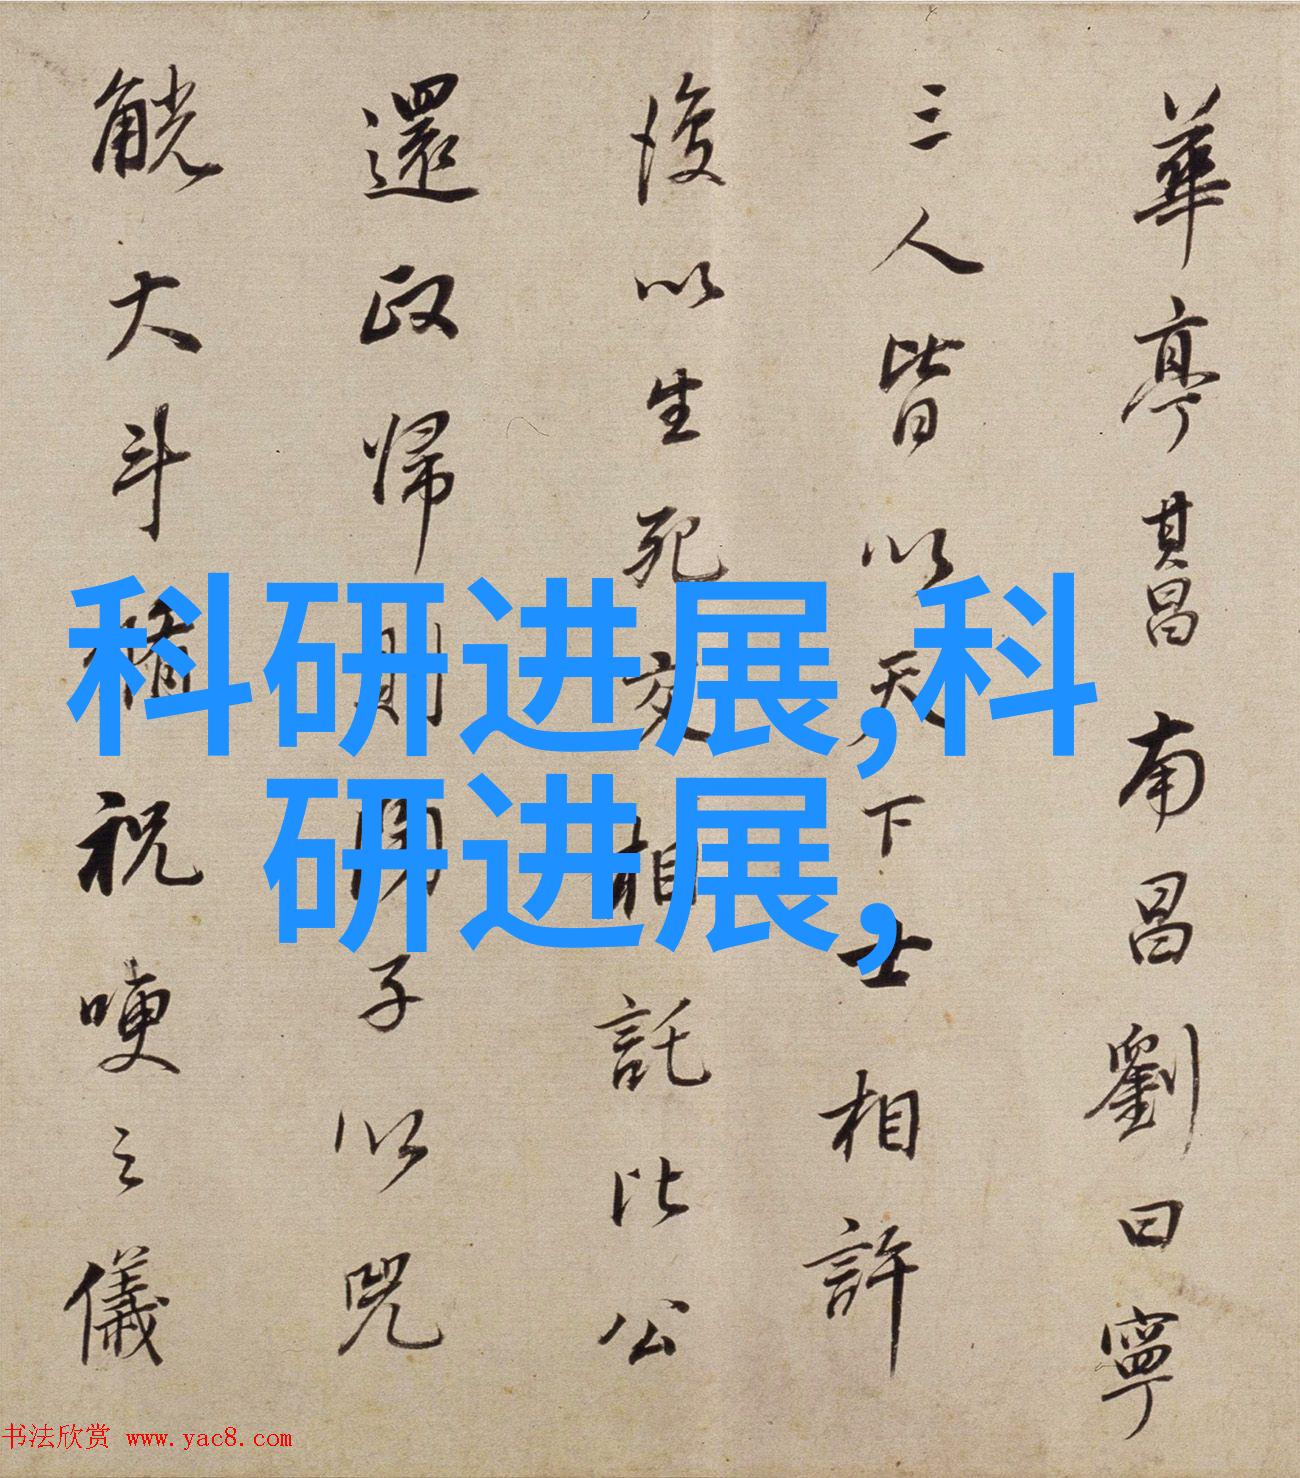 華亭其昌南昌劉曰寧
三人皆以天下士相許
後以生死交相託比公
還政歸則周子以兕
觥大斗脩祝哽之儀
科研进展,科
研进展,
书法欣赏 www.yac8.com